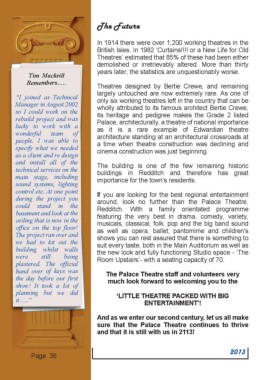 Tim Mackrill
Remembers….
"I joined as Technical
Manager in August 2002
so I could work on the
rebuild project and was
lucky to work with a
wonderful team of
people. I was able to
specify what we needed
as a client and re design
and install all of the
technical services on the
main stage, including
sound systems, lighting
control etc. At one point
during the project you
could stand in the
basement and look at the
ceiling that is now in the
office on the top floor!
The project ran over and
we had to kit out the
building whilst walls
were still being
plastered. The official
hand over of keys was
the day before our first
show! It took a lot of
planning but we did
it….."
Page 36
The Future
In 1914 there were over 1,200 working theatres in the
British Isles. In 1982 'Curtains!!!! or a New Life for Old
Theatres' estimated that 85% of these had been either
demolished or irretrievably altered. More than thirty
years later, the statistics are unquestionably worse.
Theatres designed by Bertie Crewe, and remaining
largely untouched are now extremely rare. As one of
only six working theatres left in the country that can be
wholly attributed to its famous architect Bertie Crewe,
its heritage and pedigree makes the Grade 2 listed
Palace, architecturally, a theatre of national importance
as it is a rare example of Edwardian theatre
architecture standing at an architectural crossroads at
a time when theatre construction was declining and
cinema construction was just beginning.
The building is one of the few remaining historic
buildings in Redditch and therefore has great
importance for the town's residents.
If you are looking for the best regional entertainment
around, look no further than the Palace Theatre,
Redditch. With a family orientated programme
featuring the very best in drama, comedy, variety,
musicals, classical, folk, pop and the big band sound
as well as opera, ballet, pantomime and children's
shows you can rest assured that there is something to
suit every taste, both in the Main Auditorium as well as
the new look and fully functioning Studio space - 'The
Room Upstairs'- with a seating capacity of 70.
The Palace Theatre staff and volunteers very
much look forward to welcoming you to the
'LITTLE THEATRE PACKED WITH BIG
ENTERTAINMENT'!
And as we enter our second century, let us all make
sure that the Palace Theatre continues to thrive
and that it is still with us in 2113!
2013